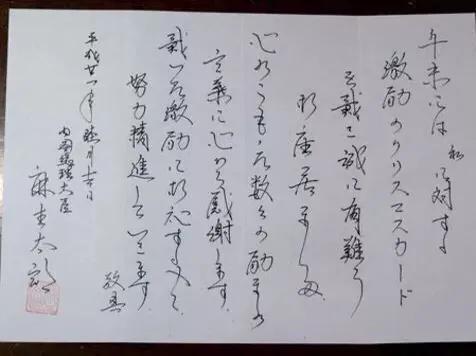 年末には私に対する
激励のクリスマスカード
を戴き誠に有難う
御座居ました
心のこもった数々の励ましの
言葉に心から感謝します
戴いた激励に
努力精進していきます
敬具
平成廿一年
内閣総理大臣
麻生太郎